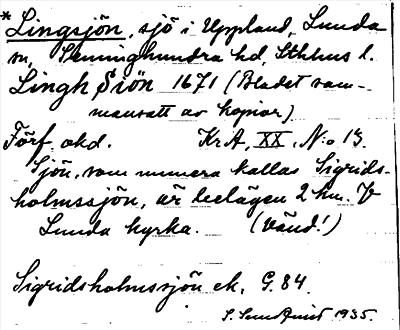 * Lingsjön, sjö i Uppland, Lunda
sn, Seminghundra hd, Sthlms l.
Lingh Siön 1671 (Bladet sam-
mansatt av kopior)
Förf. okd. KrA, XX, No 13.
Sjön, som numera kallas Sigrids-
holmssjön, är belägen 2 km. V
Lunda kyrka. (Vänd!)
Sigridsholmssjön ek, G. 84.
1935.